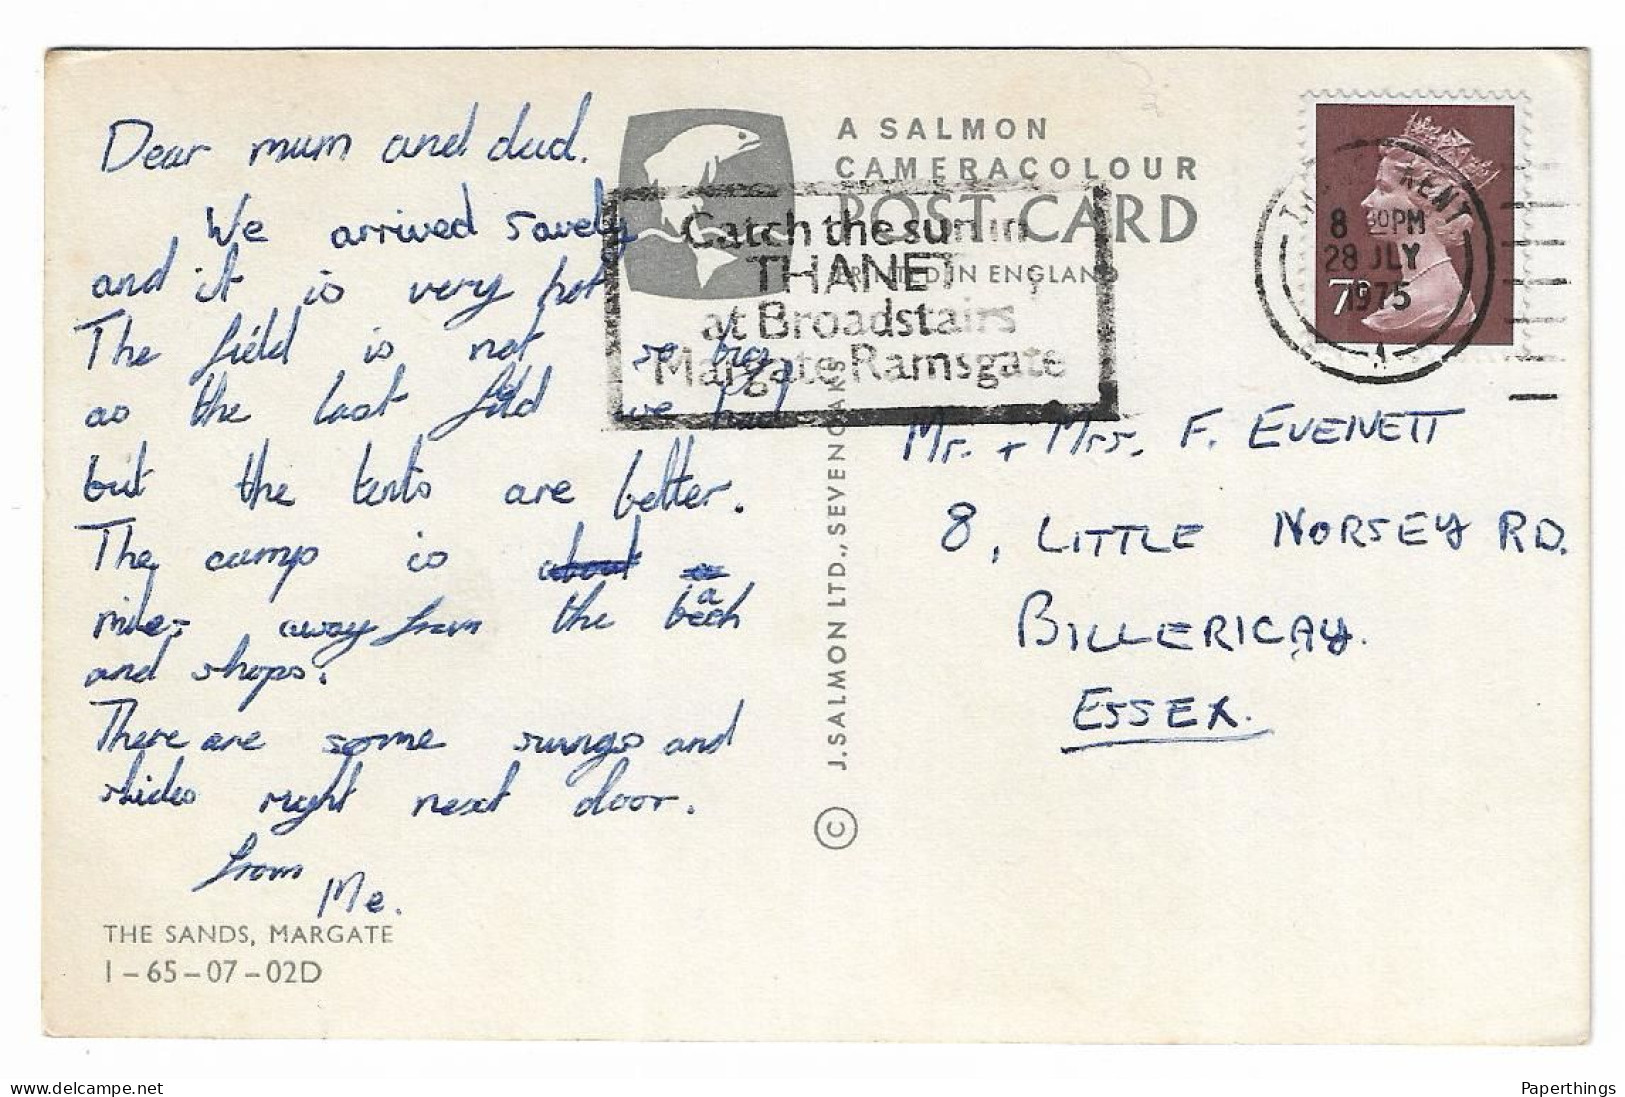 Dear mum and dad.
We arrived savely
and it is very hot
The field is not so big
as the last field we had
but the tents are better.
The camp is about
miles away from the beach
and shops.
There are some swings and
slides right next door.
from
Me.
THE SANDS, MARGATE
1-65-07-02D
A SALMON
CAMERACOLOUR
POST CARD
PRINTED IN ENGLAND
Catch the sun in
THANET
at Broadstairs
Margate Ramsgate
J. SALMON LTD., SEVENOAKS ©
KENT
8 30PM
28 JLY
1975
7P
Mr. + Mrs. F. EVENETT
8, LITTLE NORSEY RD.
BILLERICAY.
ESSEX.
delcampe.net
Paperthings